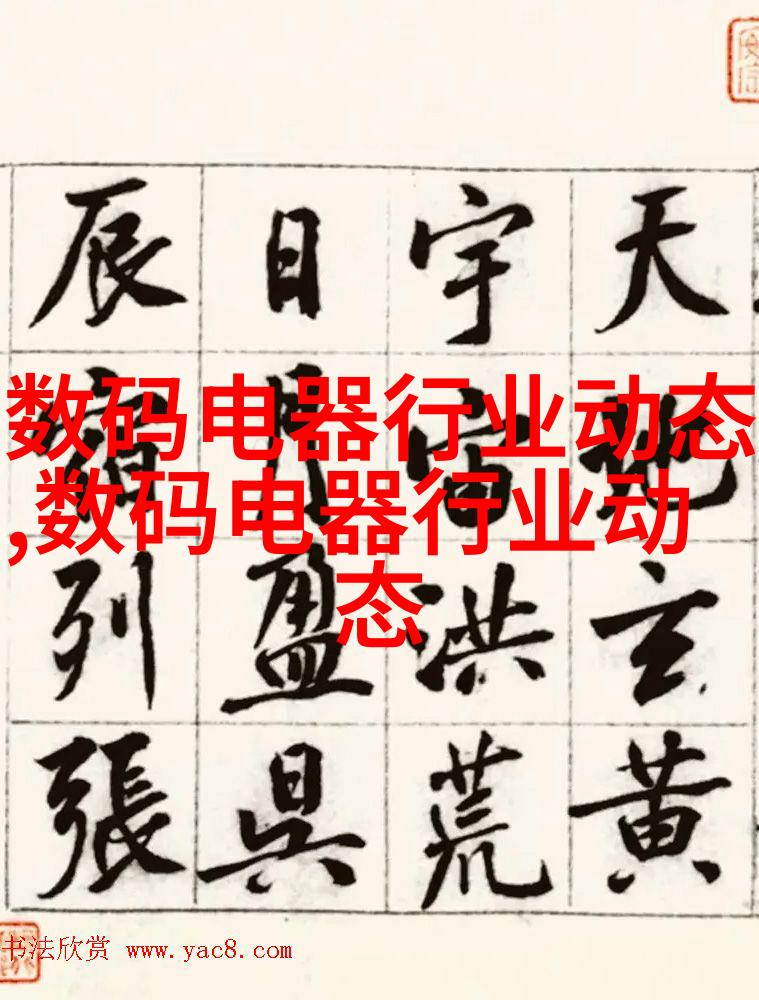 天地玄黄
宇宙洪荒
日月盈昃
辰宿列張
数码电器行业动态
,数码电器行业动
态
书法欣赏 www.yac8.com